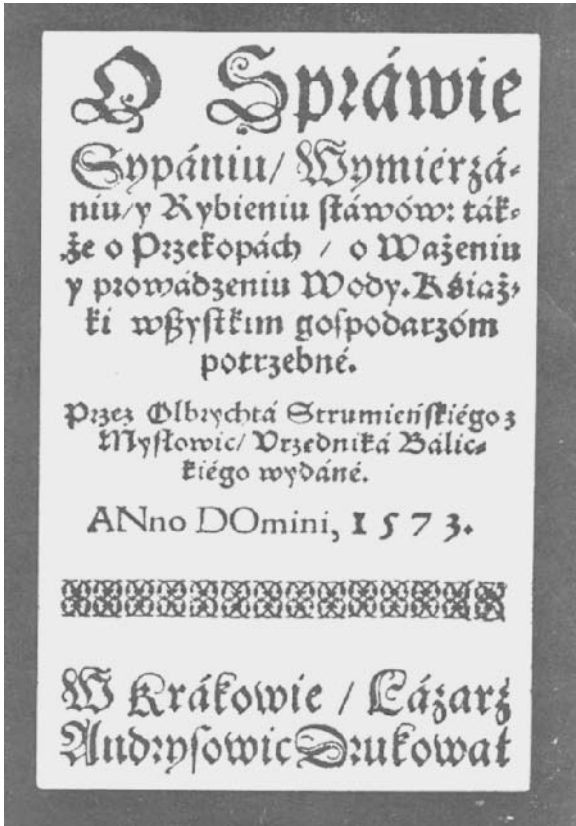 O Spráwie
Sypániu/ Wymiérzá-
niu/y Rybieniu stáwów: ták-
że o Przekopách / o Ważeniu
y prowádzeniu Wody. Książ-
ki wszystkim gospodarzóm
potrzebné.
Przez Olbrychtá Strumieńskiégo z
Mysłowic/ Vrzedniká Balic-
kiégo wydáné.
ANno DOmini, 1573.
W Krákowie / Łázarz
Andrysowic Drukował